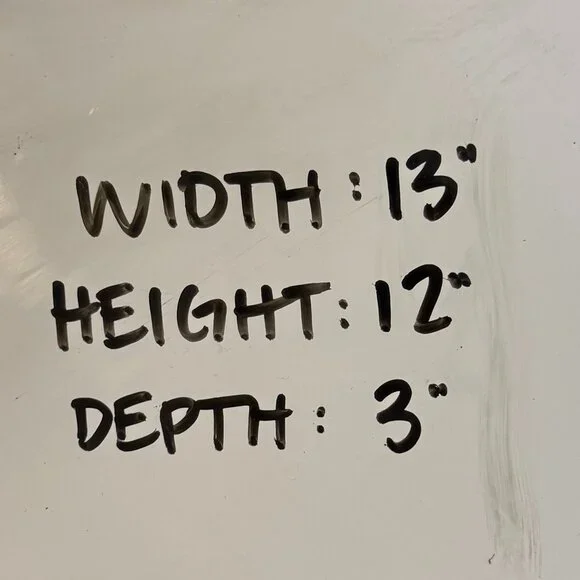 WIDTH: 13"
HEIGHT: 12"
DEPTH: 3"